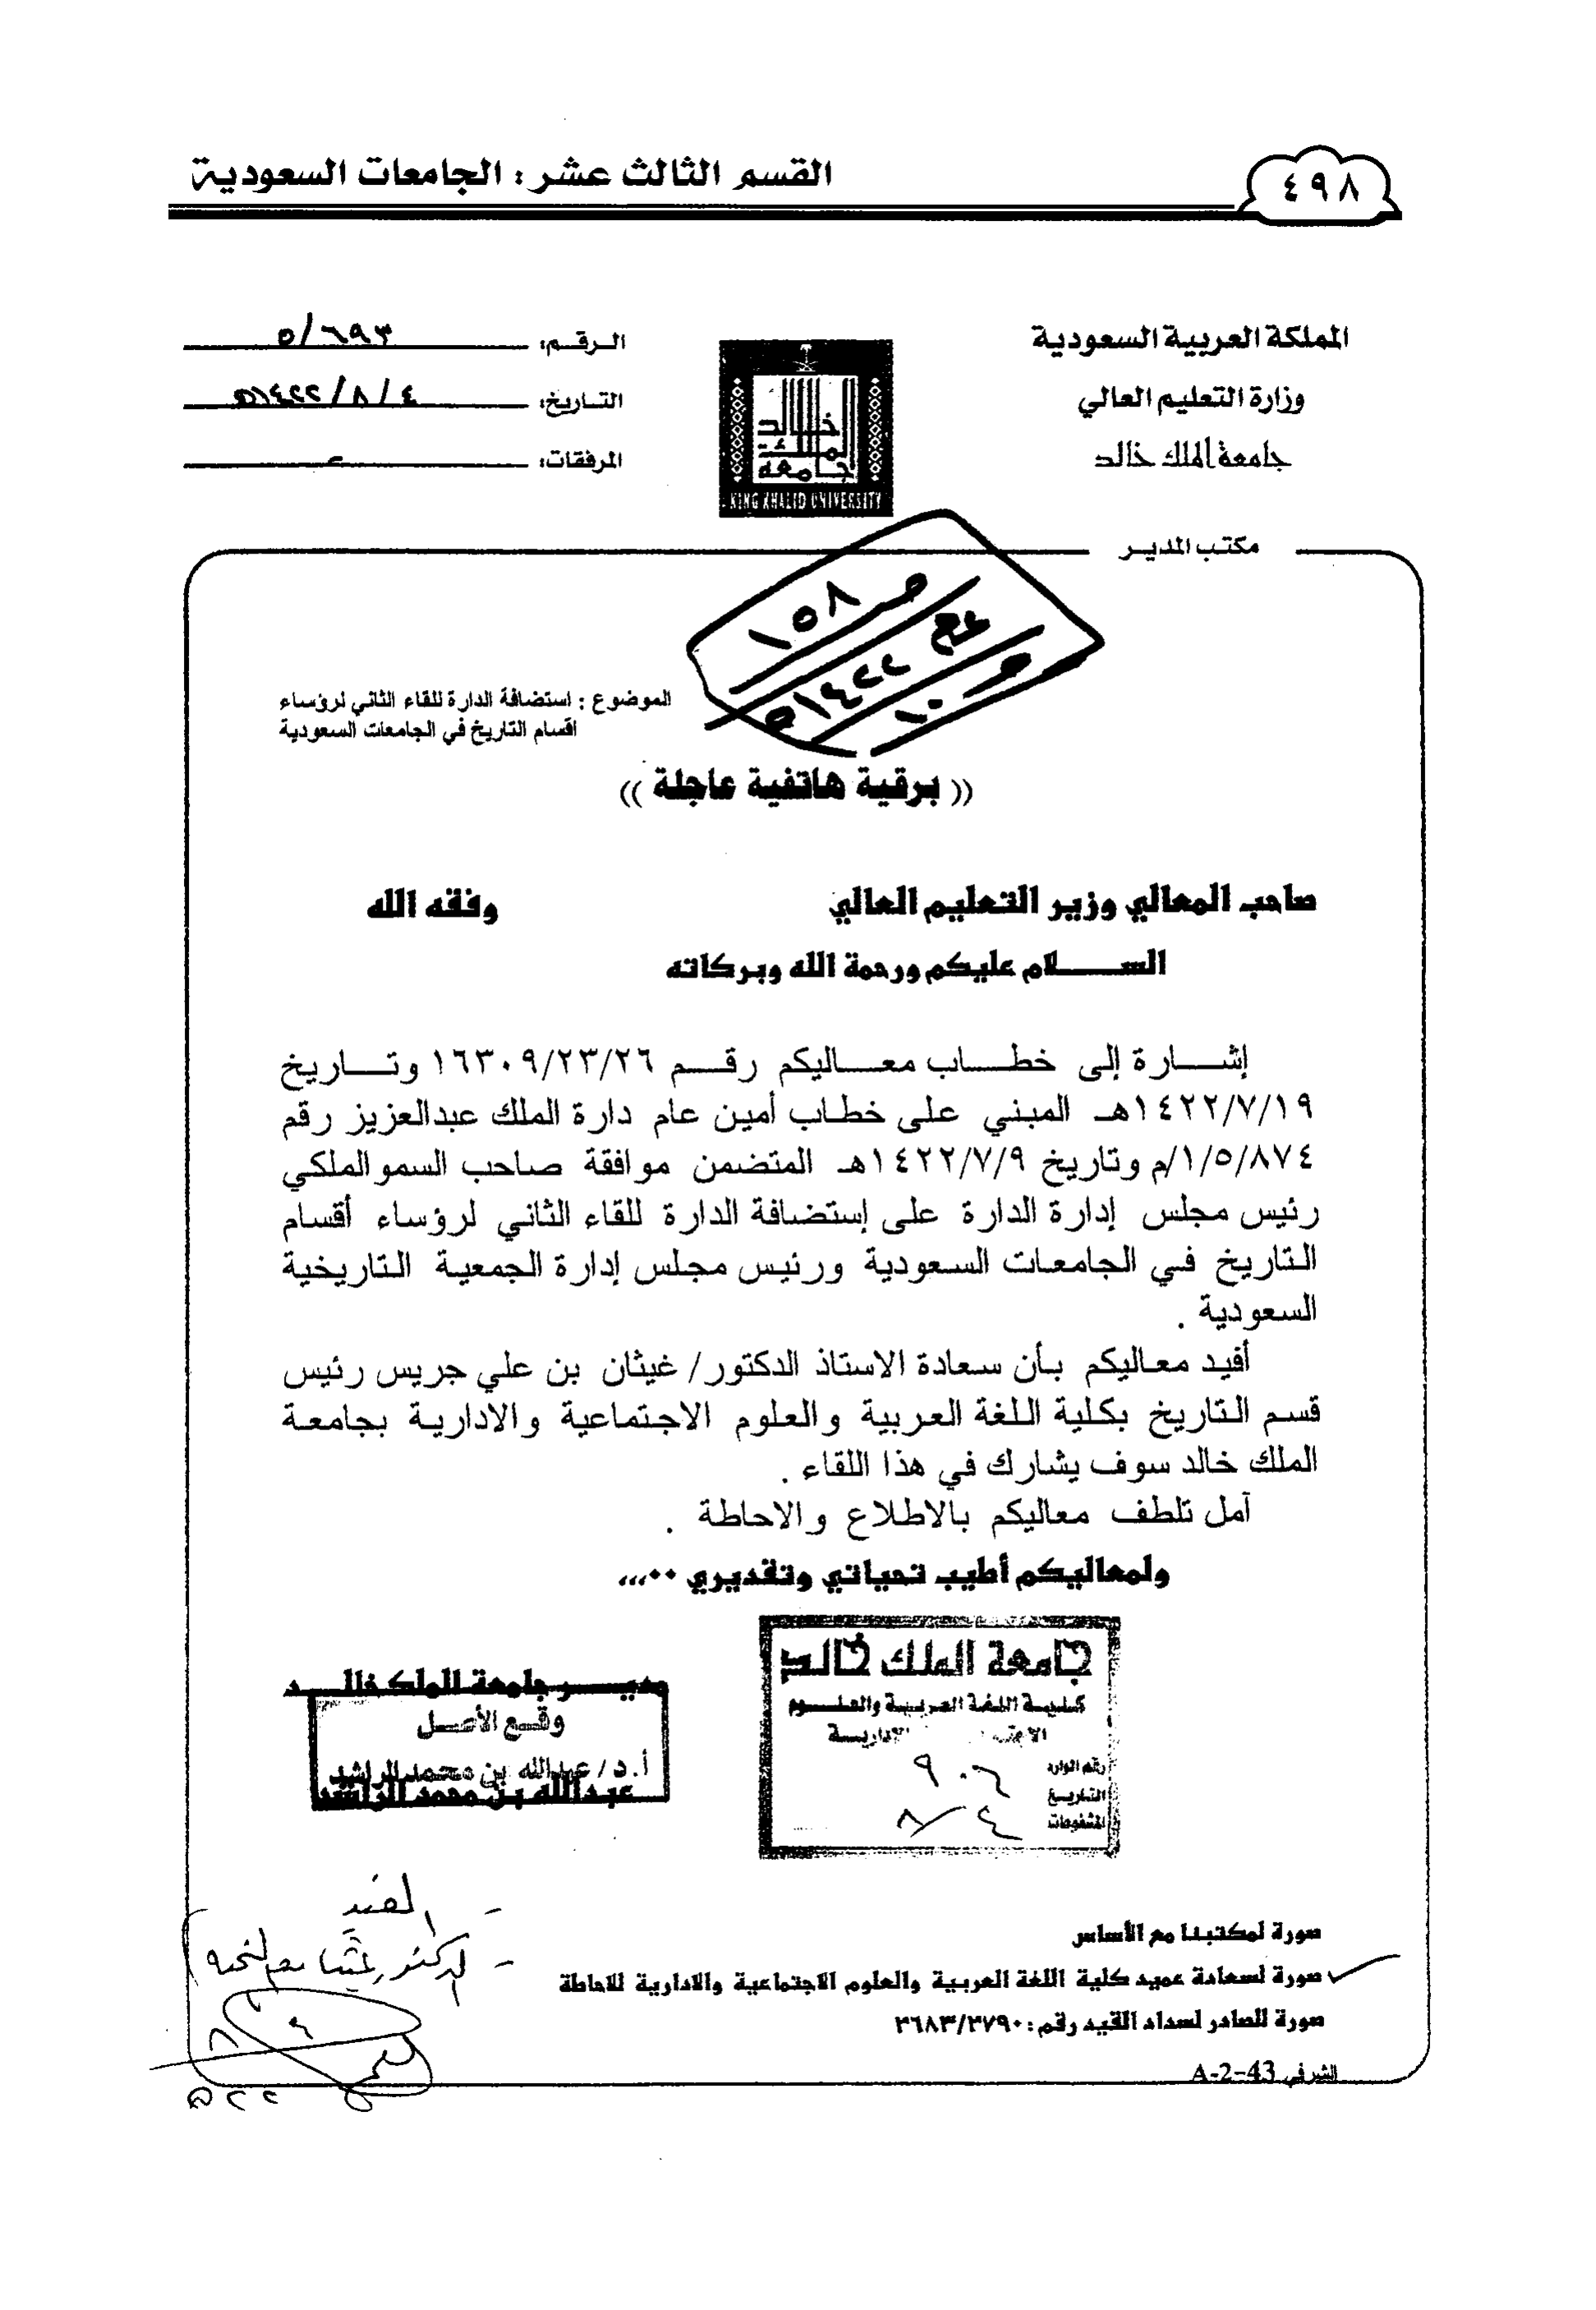 القسم الثالث عشر: الجامعات السعودية
٤٩٨
المملكة العربية السعودية
وزارة التعليم العالي
جامعة الملك خالد
مكتب المدير
الرقم: ٥/٦٩٣
التاريخ: ٤/٨/١٤٢٢هـ
المرفقات:
خالد
الملك
جامعة
KING KHALID UNIVERSITY
ص ١٥٨
١٤٢٢هـ
الموضوع : استضافة الدارة للقاء الثاني لرؤساء
اقسام التاريخ في الجامعات السعودية
(( برقية هاتفية عاجلة ))
صاحب المعالي وزير التعليم العالي وفقه الله
الســـــلام عليكم ورحمة الله وبركاته
إشـــارة إلى خطـــاب معـــاليكم رقـــم ١٦٣٠٩/٢٣/٢٦ وتـــاريخ
١٤٢٢/٧/١٩هـ المبني على خطاب أمين عام دارة الملك عبدالعزيز رقم
١/٥/٨٧٤/م وتاريخ ١٤٢٢/٧/٩هـ المتضمن موافقة صاحب السمو الملكي
رئيس مجلس إدارة الدارة على إستضافة الدارة للقاء الثاني لرؤساء أقسام
التاريخ في الجامعات السعودية ورئيس مجلس إدارة الجمعية التاريخية
السعودية .
أفيد معاليكم بأن سعادة الاستاذ الدكتور/ غيثان بن علي جريس رئيس
قسم التاريخ بكلية اللغة العربية والعلوم الاجتماعية والادارية بجامعة
الملك خالد سوف يشارك في هذا اللقاء .
آمل تلطف معاليكم بالاطلاع والاحاطة .
ولمعاليكم أطيب تحياتي وتقديري ٠٠،،،
جامعة الملك خالد
كلية اللغة العربية والعلوم
الادارية
رقم الوارد ٩٠٦
التاريخ ٨/٤
المشفوعات
مديـــر جامعة الملك خالـــد
وقع الأصل
أ.د/ عبدالله بن محمد الراشد
عبدالله بن محمد الراشد
صورة لمكتبنا مع الأساس
صورة لسعادة عميد كلية اللغة العربية والعلوم الاجتماعية والادارية للاحاطة
صورة للصادر لسداد القيد رقم: ٣٦٨٣/٣٧٩٠
الشرفي A-2-43